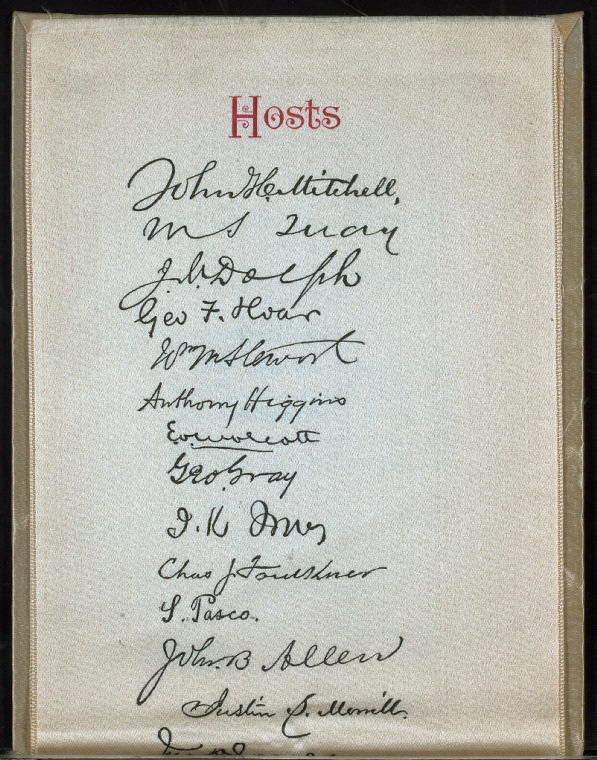 Hosts
John H. Mitchell,
M S Quay
J. N. Dolph
Geo F. Hoar
Wm M Stewart
Anthony Higgins
E. O. Wolcott
Geo Gray
J. K Jones
Chas J. Faulkner
S. Pasco.
John. B Allen
Justin S. Morrill.